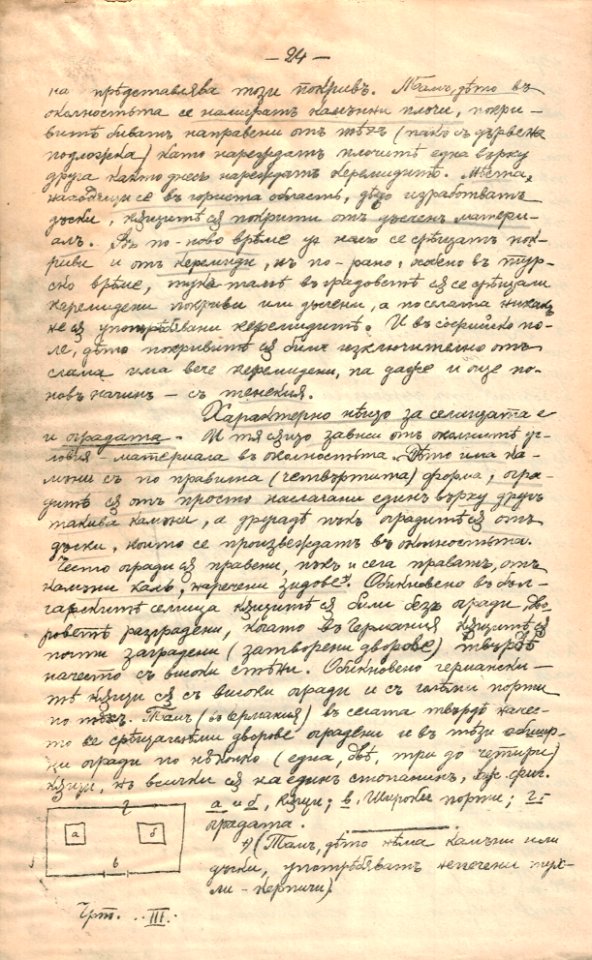 — 24 —
на прѣдставлява този покривъ. Тамъ, дѣто въ
околностьта се намиратъ каменни плочи, покри-
витѣ биватъ направени отъ тѣхъ (пакъ съ дървена
подложка) като нареждатъ плочитѣ една върху
друга както днесъ нареждатъ керемидитѣ. Мѣста,
находящи се въ гориста область, дѣто изработватъ
дъски, кѫщитѣ сѫ покрити отъ дъсченъ матери-
алъ. Въ по-ново врѣме у насъ се срѣщатъ пок-
риви и отъ керемиди, нъ по-рано, особено въ тур-
ско врѣме, тукъ тамѣ въ градоветѣ сѫ се срѣщали
керемидени покриви или дъсчени, а по селата никакъ
не сѫ употрѣбявани керемидитѣ. И въ Софийско по-
ле, дѣто покривитѣ сѫ били изключително отъ
слама има вече керемидени, па даже и още по
новъ начинъ — съ тенекия.
Характерно нѣщо за селищата е
и оградата. И тя сѫщо зависи отъ околнитѣ ус-
ловия - материала въ околностьта. Дѣто има ка-
мъни съ по правилна (четвъртита) форма, огра-
дитѣ сѫ отъ просто наслагани единъ върху другъ
такива камъни, а другадѣ пъкъ оградитѣ сѫ отъ
дъски, които се произвеждатъ въ околностьта.
Често огради сѫ правени, пъкъ и сега правятъ, отъ
камъни калъ, наречени зидове. Обикновено въ бъл-
гарскитѣ селища кѫщитѣ сѫ били безъ огради, дво-
роветѣ разградени, когато въ Германия кѫщитѣ сѫ
почти заградени (затворени дворове) твърдѣ
начесто съ високи стѣни. Обикновено германски-
тѣ кѫщи сѫ съ високи огради и съ голѣми порти
по тѣхъ. Тамъ (въ Германия) въ селата твърдѣ начес-
то се срѣщатъ голѣми дворове оградени и въ тѣзи обшир-
ни огради по нѣколко (една, двѣ, три до четири)
кѫщи, нъ всички сѫ на единъ стопанинъ, виж. фиг.
а и б, кѫщи; в. Широки порти; г.
оградата.
г
а
б
в
*) (Тамъ, дѣто нѣма камъни или
дъски, употрѣбяватъ непечени тух-
ли - керпичи)
Чрт. III.